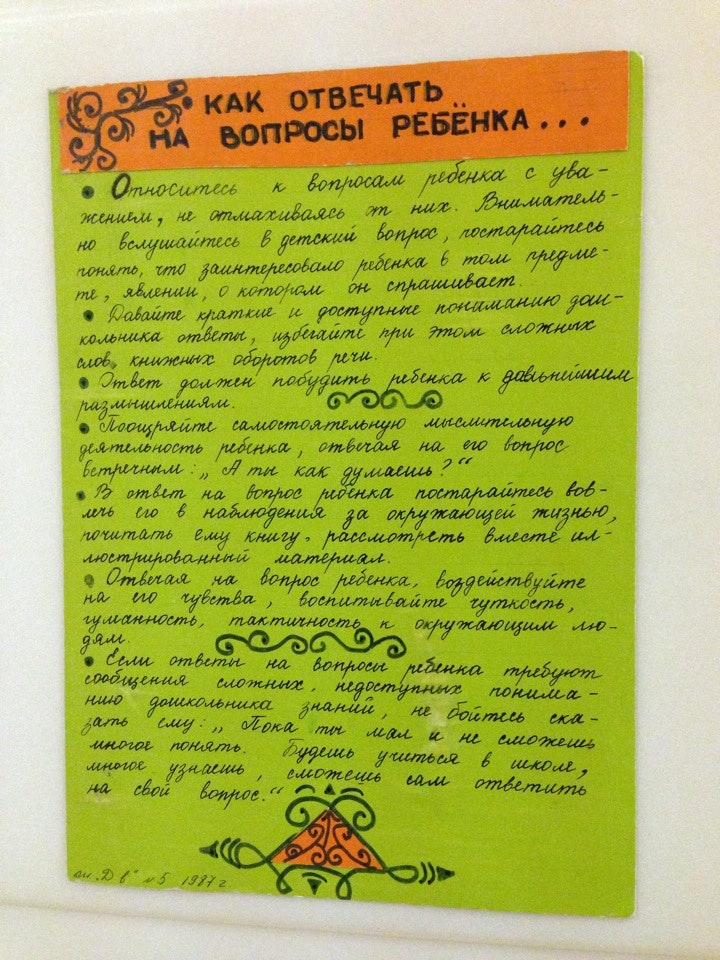 КАК ОТВЕЧАТЬ
НА ВОПРОСЫ РЕБЁНКА...
• Относитесь к вопросам ребенка с ува-
жением, не отмахиваясь от них. Вниматель-
но вслушайтесь в детский вопрос, постарайтесь
понять, что заинтересовало ребенка в том предме-
те, явлении, о котором он спрашивает.
• Давайте краткие и доступные пониманию дош-
кольника ответы, избегайте при этом сложных
слов, книжных оборотов речи.
• Ответ должен побудить ребенка к дальнейшим
размышлениям.
• Поощряйте самостоятельную мыслительную
деятельность ребенка, отвечая на его вопрос
встречным: „А ты как думаешь?“
• В ответ на вопрос ребенка постарайтесь вов-
лечь его в наблюдения за окружающей жизнью,
почитать ему книгу, рассмотреть вместе ил-
люстрированный материал.
• Отвечая на вопрос ребенка, воздействуйте
на его чувства, воспитывайте чуткость,
гуманность, тактичность к окружающим лю-
дям.
• Если ответы на вопросы ребенка требуют
сообщения сложных, недоступных понима-
нию дошкольника знаний, не бойтесь ска-
зать ему: „Пока ты мал и не сможешь
многое понять. Будешь учиться в школе,
многое узнаешь, сможешь сам ответить
на свой вопрос.“
„Д в“ №5 1987 г